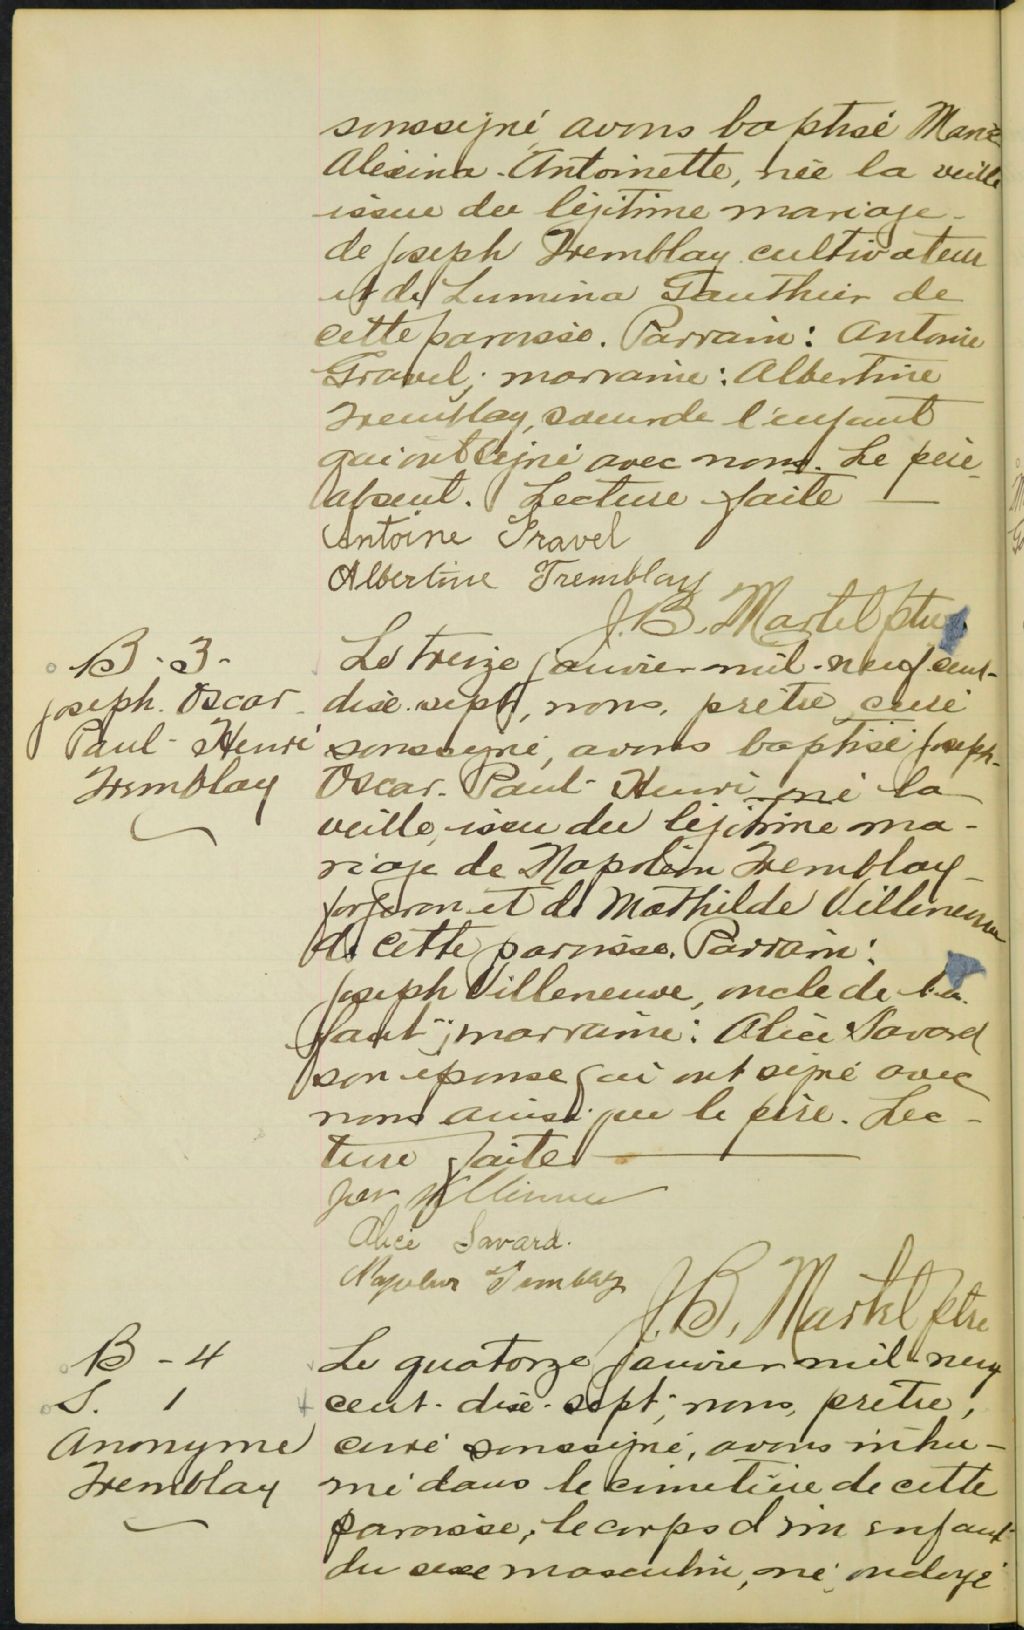 soussigné, avons baptisé Marie
Alexina-Antoinette, née la veille
issue du légitime mariage
de Joseph Tremblay cultivateur
et de Lumina Gauthier de
cette paroisse. Parrain: Antoine
Gravel; marraine: Albertine
Tremblay, soeur de l'enfant
qui ont signé avec nous. Le père
absent. Lecture faite
Antoine Gravel
Albertine Tremblay
J.B. Martel ptre
B. 3.
Joseph. Oscar
Paul-Henri
Tremblay
Le treize janvier mil-neuf-cent-
dix-sept, nous, prêtre curé
soussigné, avons baptisé Joseph-
Oscar-Paul-Henri né la
veille, issu du légitime ma-
riage de Napoléon Tremblay
forgeron et de Mathilde Villeneuve
de cette paroisse. Parrain:
Joseph Villeneuve, oncle de l'en-
fant; marraine: Alice Savard
son épouse qui ont signé avec
nous ainsi que le père. Lec-
ture faite
Alice Savard.
Napoleon Tremblay
J.B. Martel ptre
B - 4
S. 1
Anonyme
Tremblay
Le quatorze janvier mil-neuf
cent-dix-sept, nous, prêtre,
curé soussigné, avons inhu-
mé dans le cimetière de cette
paroisse, le corps d'un enfant
du sexe masculin, né, ondoyé